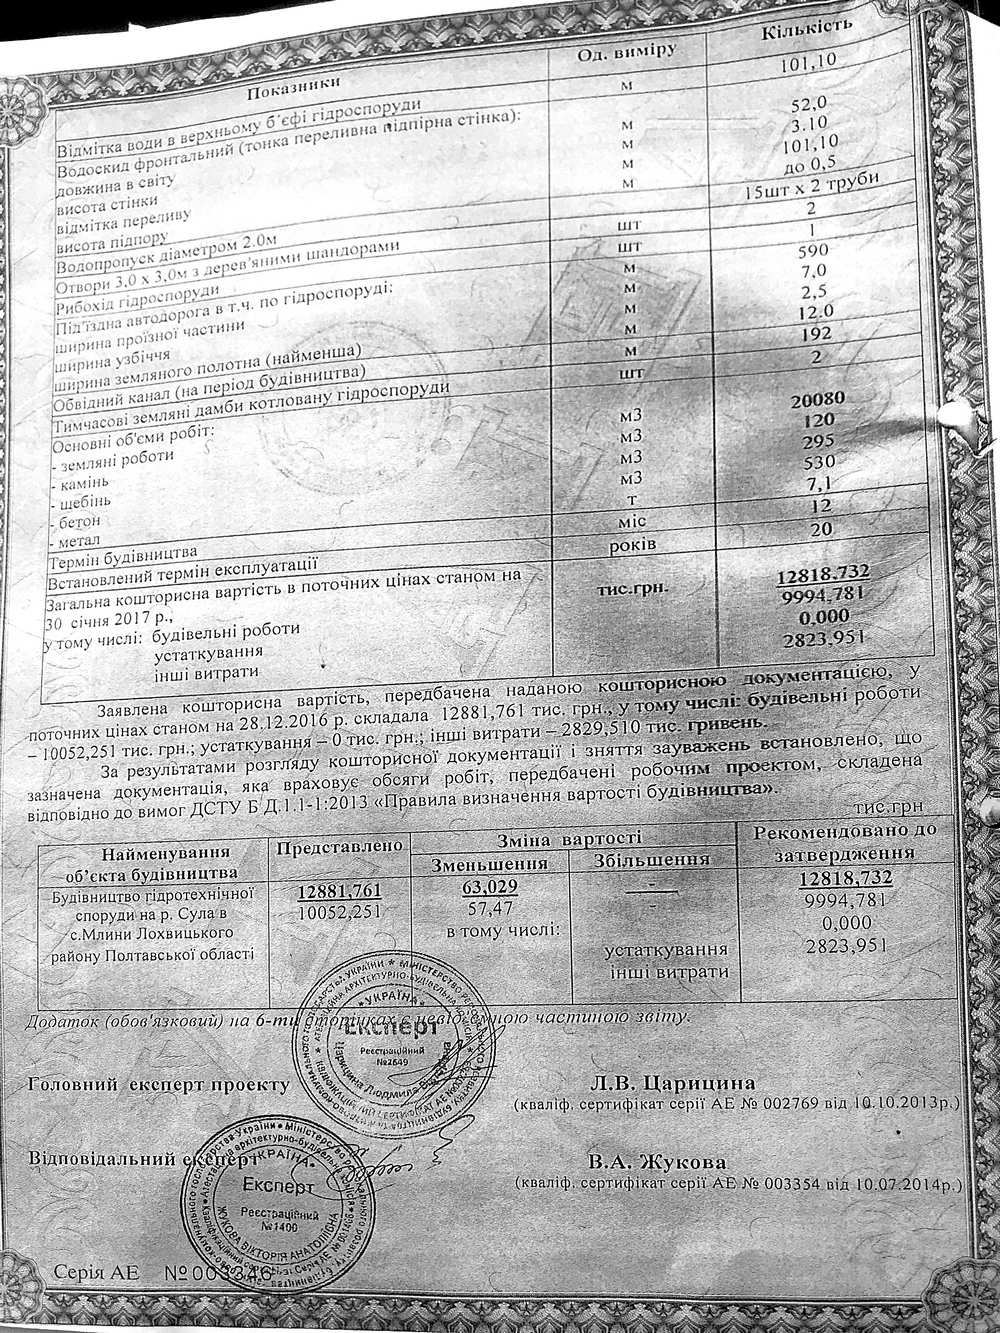 Показники Од. виміру Кількість
Відмітка води в верхньому б´єфі гідроспоруди м 101,10
Водоскид фронтальний (тонка переливна підпірна стінка):
довжина в світу м 52,0
висота стінки м 3.10
відмітка переливу м 101,10
висота підпору м до 0,5
Водопропуск діаметром 2.0м 15шт х 2 труби
Отвори 3,0 х 3,0м з дерев'яними шандорами шт 2
Рибохід гідроспоруди шт 1
Під'їздна автодорога в т.ч. по гідроспоруді: м 590
ширина проїзної частини м 7,0
ширина узбіччя м 2,5
ширина земляного полотна (найменша) м 12.0
Обвідний канал (на період будівництва) м 192
Тимчасові земляні дамби котловану гідроспоруди шт 2
Основні об'єми робіт:
- земляні роботи м3 20080
- камінь м3 120
- щебінь м3 295
- бетон м3 530
- метал т 7,1
Термін будівництва міс 12
Встановлений термін експлуатації років 20
Загальна кошторисна вартість в поточних цінах станом на
30 січня 2017 р., тис.грн. 12818.732
у тому числі: будівельні роботи 9994.781
устаткування 0,000
інші витрати 2823,951
Заявлена кошторисна вартість, передбачена наданою кошторисною документацією, у
поточних цінах станом на 28.12.2016 р. складала 12881,761 тис. грн., у тому числі: будівельні роботи
– 10052,251 тис. грн.; устаткування – 0 тис. грн.; інші витрати – 2829,510 тис. гривень.
За результатами розгляду кошторисної документації і зняття зауважень встановлено, що
зазначена документація, яка враховує обсяги робіт, передбачені робочим проектом, складена
відповідно до вимог ДСТУ Б Д.1.1-1:2013 «Правила визначення вартості будівництва».
тис.грн
Найменування об’єкта будівництва Представлено Зміна вартості Рекомендовано до затвердження
Зменьшення Збільшення
Будівництво гідротехнічної 12881,761 63,029 - 12818,732
споруди на р. Сула в 10052,251 57,47 - 9994,781
с.Млини Лохвицького в тому числі: 0,000
району Полтавської області устаткування 2823,951
інші витрати
Додаток (обов'язковий) на 6-ти сторінках є невід'ємною частиною звіту.
УКРАЇНА
Експерт
Реєстраційний
№2649
Царицина Людмила
Головний експерт проекту Л.В. Царицина
(кваліф. сертифікат серії АЕ № 002769 від 10.10.2013р.)
Відповідальний експерт В.А. Жукова
(кваліф. сертифікат серії АЕ № 003354 від 10.07.2014р.)
УКРАЇНА
Експерт
Реєстраційний
№1400
ЖУКОВА ВІКТОРІЯ АНАТОЛІЇВНА
Серія АЕ №003346